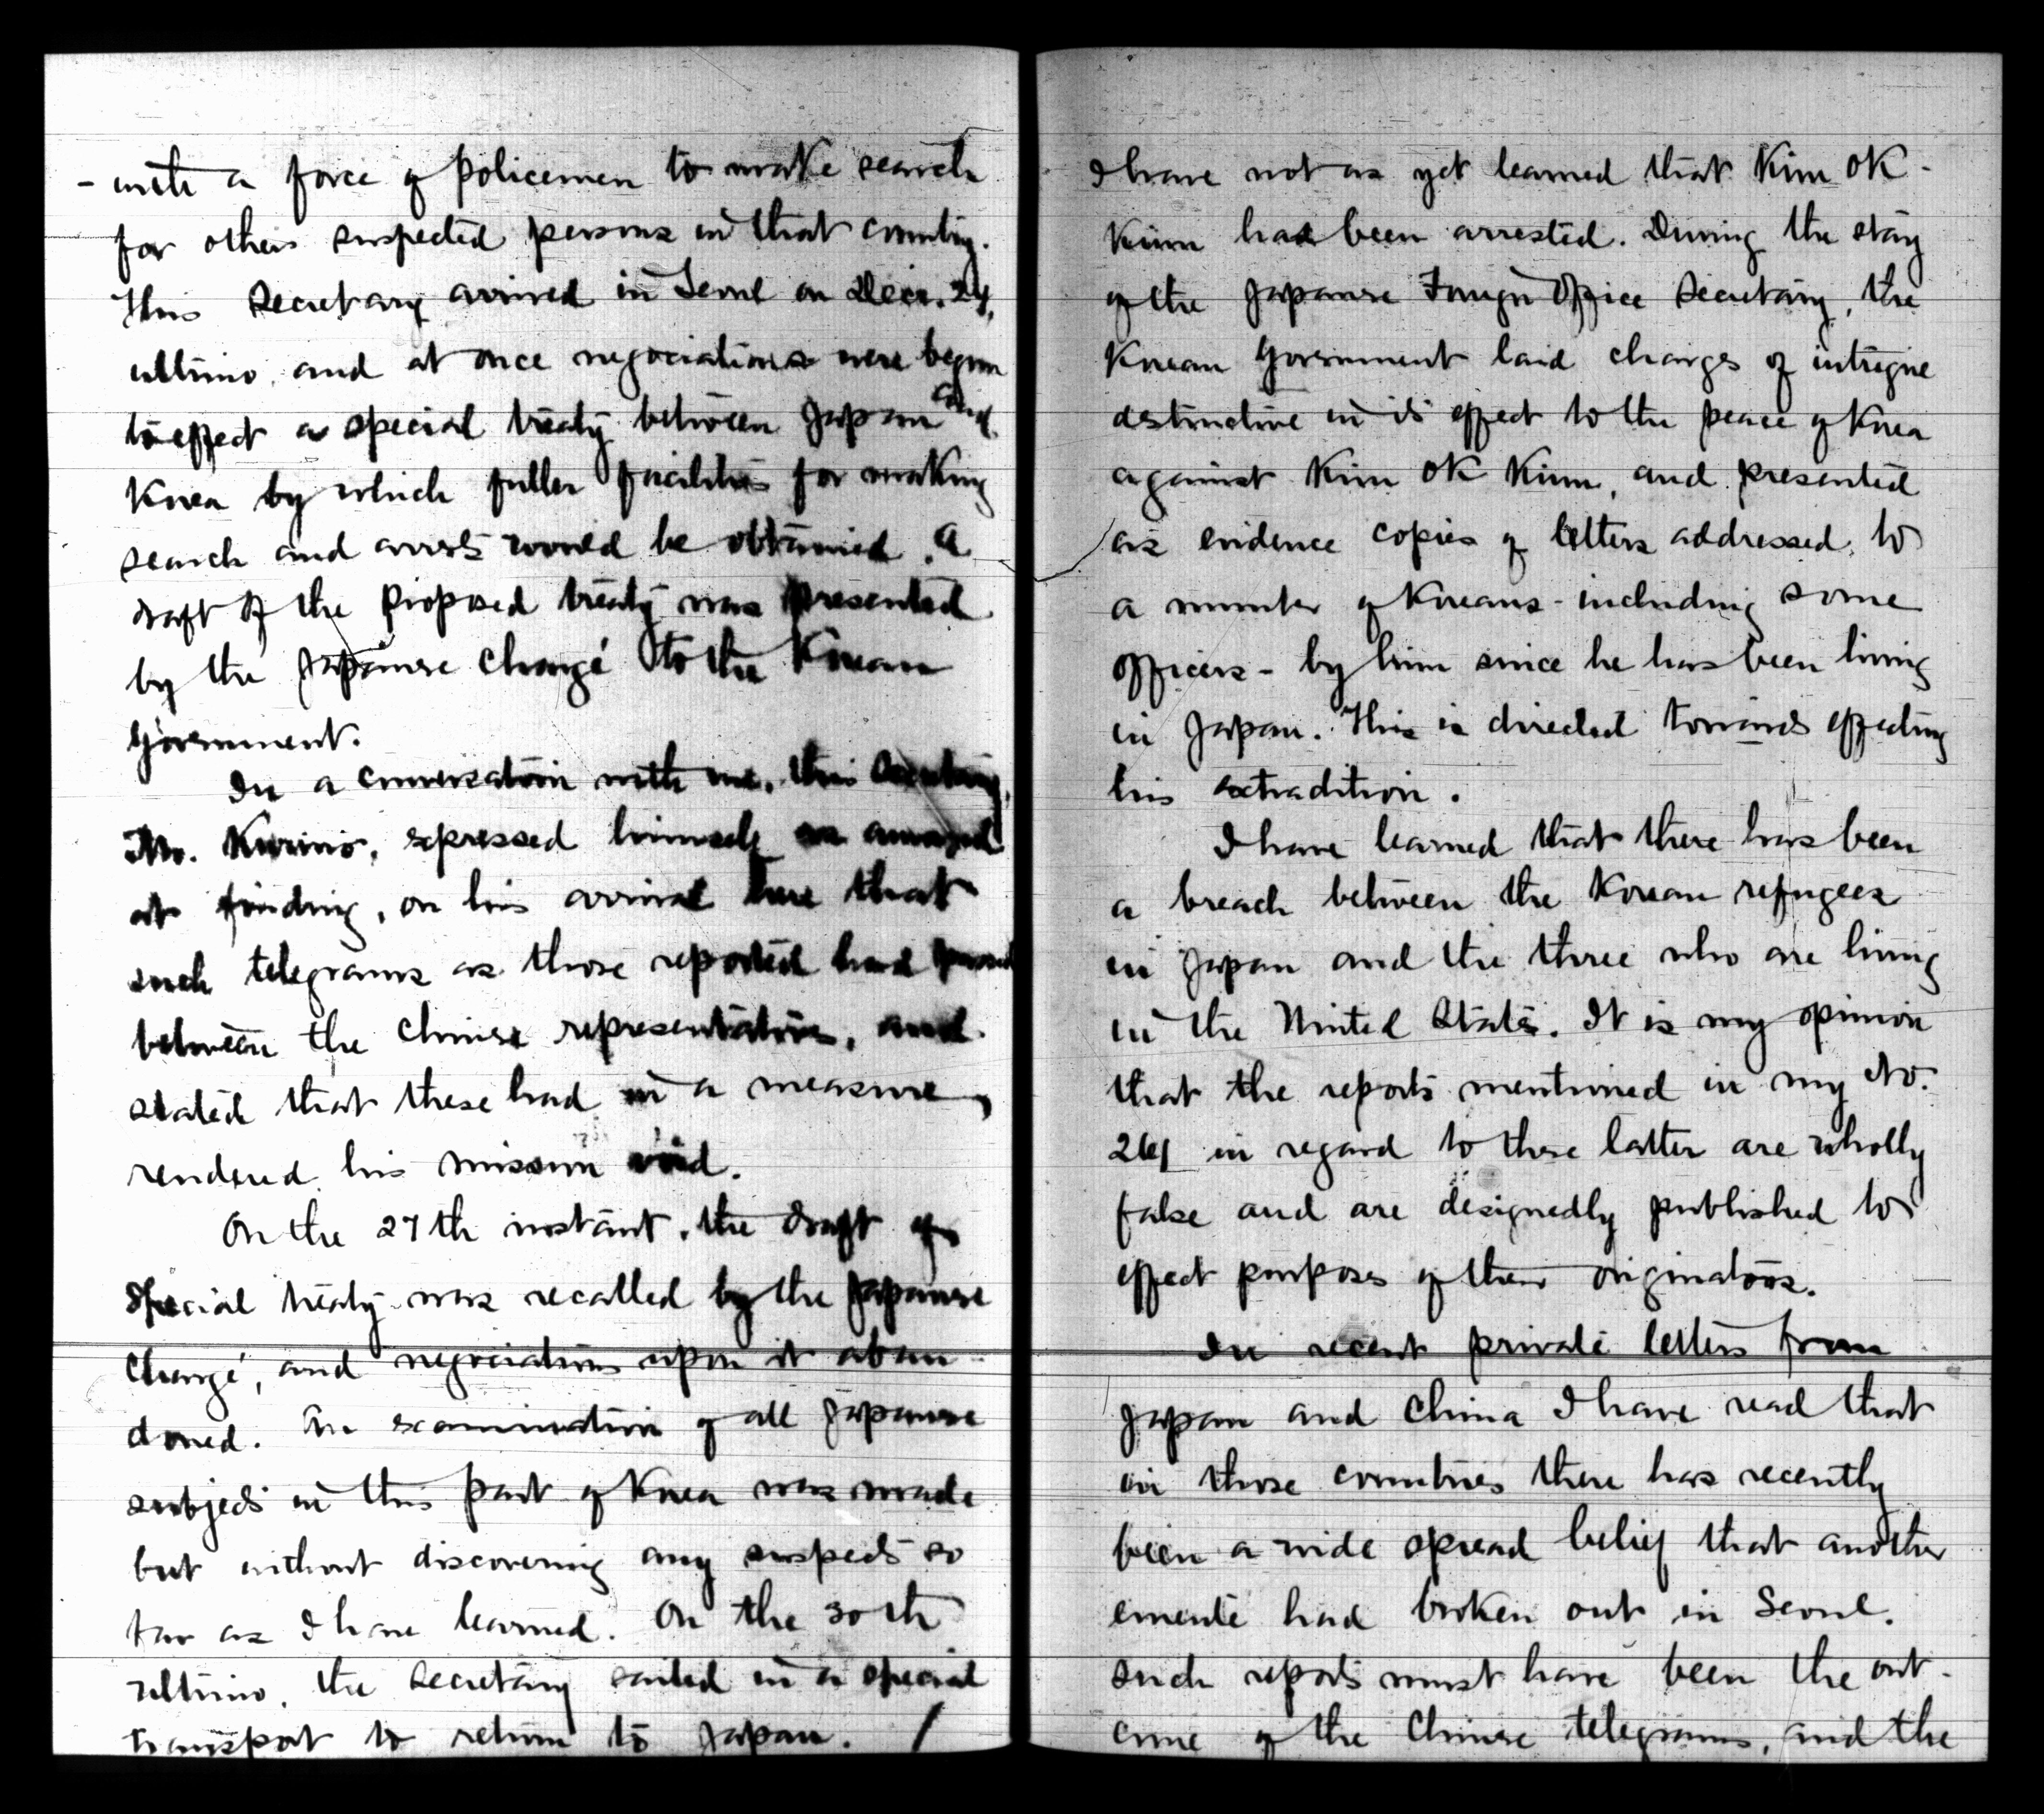 - with a force of policemen to make search
for others suspected persons in that country.
This Secretary arrived in Seoul on Decr. 24,
ultimo, and at once negociations were begun
to effect a special treaty between Japan and
Korea by which fuller facilities for making
search and arrests would be obtained. A
draft of the proposed treaty was presented
by the Japanese Chargé to the Korean
Government.
In a conversation with me, this Secretary,
Mr. Kurino, expressed himself as amazed
at finding, on his arrival here that
such telegrams as those reported had passed
between the Chinese representatives, and
stated that these had in a measure,
rendered his mission void.
On the 27th instant, the draft of
Special treaty was recalled by the Japanese
Chargé, and negociations upon it aban-
doned. An examination of all Japanese
subjects in this part of Korea was made
but without discovering any suspects so
far as I have learned. On the 30th
ultimo, the Secretary sailed in a special
transport to return to Japan. /
I have not as yet learned that Kim OK-
Kiun had been arrested. During the stay
of the Japanese Foreign Office Secretary, the
Korean Government laid charges of intrigue
destructive in its effect to the peace of Korea
against Kim OK Kiun, and presented
as evidence copies of letters addressed to
a number of Koreans - including some
officers - by him since he has been living
in Japan. This is directed towards effecting
his extradition.
I have learned that there has been
a breach between the Korean refugees
in Japan and the three who are living
in the United States. It is my opinion
that the reports mentioned in my No.
261 in regard to these latter are wholly
false and are designedly published to
effect purposes of their originators.
In recent private letters from
Japan and China I have read that
in those countries there has recently
been a wide spread belief that another
emeute had broken out in Seoul.
Such reports must have been the out-
come of the Chinese telegrams, and the